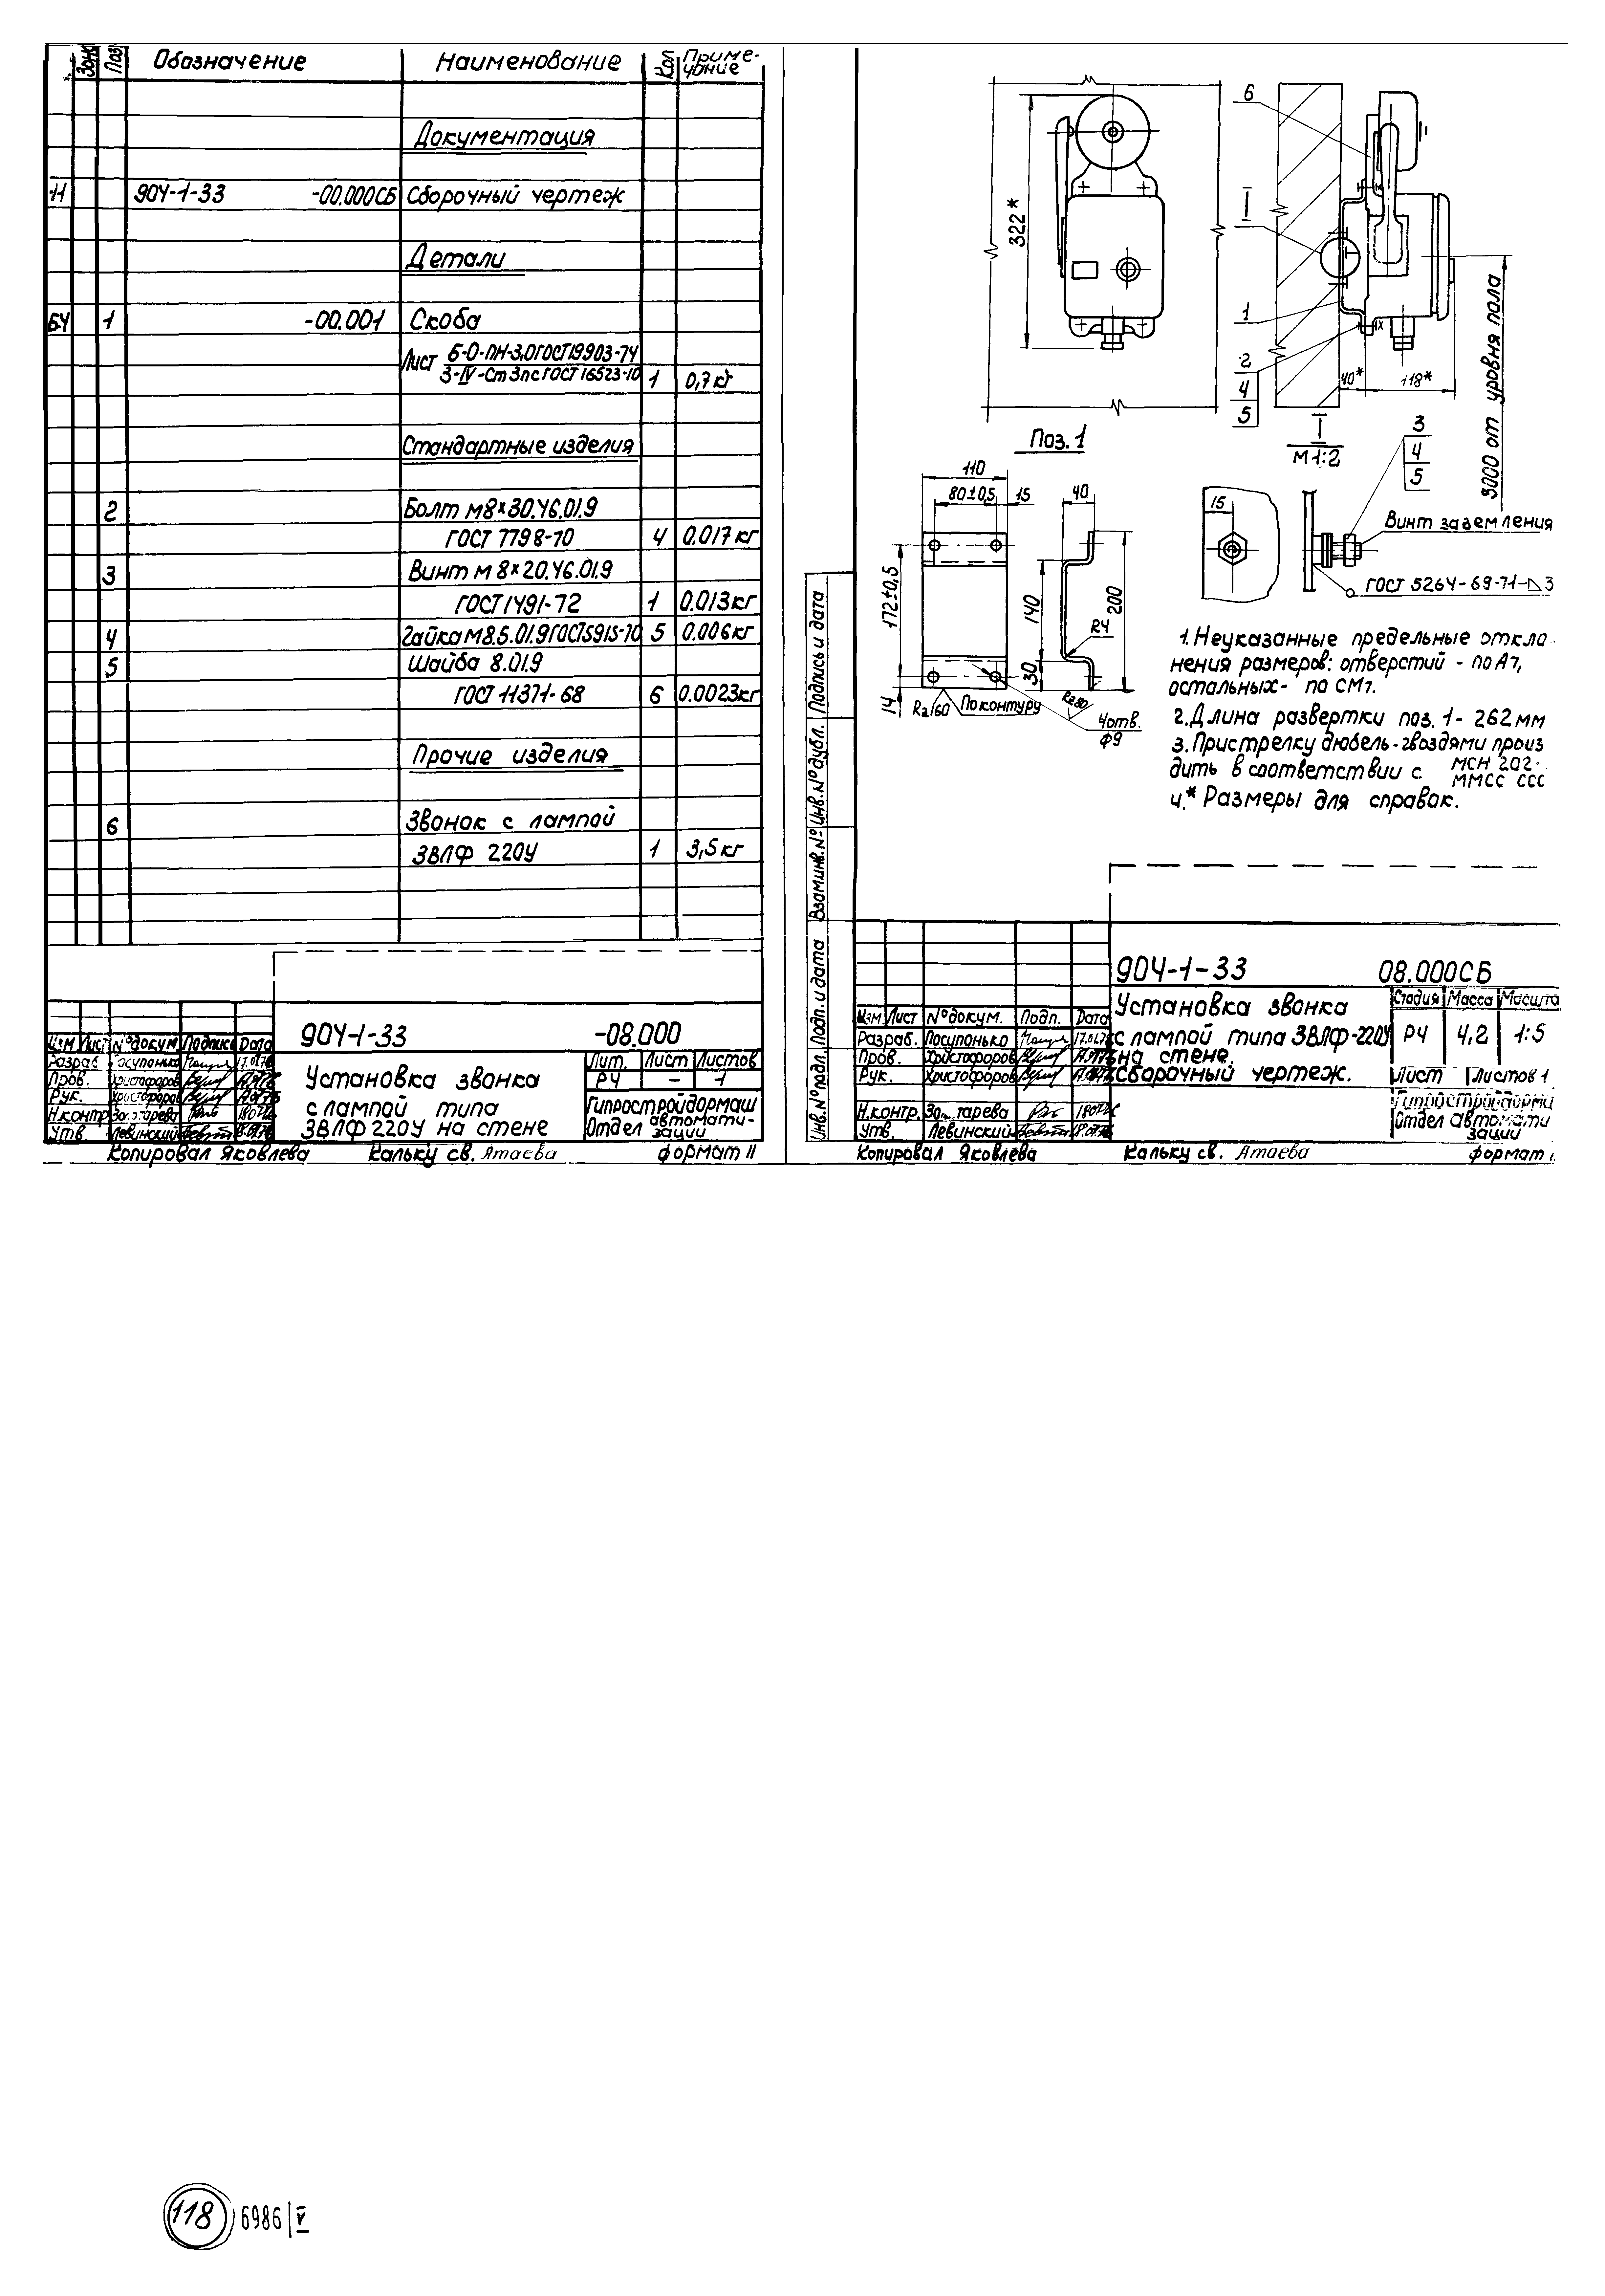 Зона Поз Обозначение Наименование Кол Приме-
чание
Документация
11 904-1-33 -00.000СБ Сборочный чертеж
Детали
БЧ 1 -00.001 Скоба
Лист Б-О-ПН-3,0 ГОСТ 19903-74
3-IV-Ст 3пс ГОСТ 16523-70 1 0,7 кг
Стандартные изделия
2 Болт М8×30.46.01.9
ГОСТ 7798-70 4 0.017 кг
3 Винт М 8×20.46.01.9
ГОСТ 1491-72 1 0.013 кг
4 Гайка М8.5.01.9 ГОСТ 5915-70 5 0.006 кг
5 Шайба 8.01.9
ГОСТ 11371-68 6 0.0023 кг
Прочие изделия
6 Звонок с лампой
ЗВЛФ 220У 1 3,5 кг
904-1-33 -08.000
Изм Лист №докум. Подпись Дата
Разраб. Посупонько 17.01.76
Пров. Христофоров
Рук. Христофоров
Н.контр.
Утв. Левинский
Установка звонка
с лампой типа
ЗВЛФ 220У на стене
Лит. Лист Листов
РЧ - 1
Гипростройдормаш
Отдел автомати-
зации
Копировал Яковлева Кальку св. Атаева формат 11
322*
6
I
1
2
4
5
40* 118*
3000 от уровня пола
Поз. 1
110
80±0,5 15
40
172±0,5
140
200
R4
30
14
Rz160 По контуру
Rz80
4 отв.
Ф9
I
М 1:2
3
4
5
15
Винт заземления
ГОСТ 5264-69-Т1-◺3
1. Неуказанные предельные откло
нения размеров: отверстий - по А7,
остальных - по СМ7.
2. Длина развертки поз. 1 - 262 мм
3. Пристрелку дюбель-гвоздями произ
дить в соответствии с МСН 202-
ММСС СССР
4.* Размеры для справок.
Подпись и дата
Инв.№ дубл.
Взам.инв.№
Подп. и дата
Инв.№ подл.
904-1-33 08.000СБ
Изм. Лист №докум. Подп. Дата
Разраб. Посупонько 17.01.76
Пров. Христофоров
Рук. Христофоров
Н.контр.
Утв. Левинский
Установка звонка
с лампой типа ЗВЛФ-220У
на стене.
Сборочный чертеж.
Стадия Масса Масшта
РЧ 4,2 1:5
Лист Листов 1
Гипростройдорма
Отдел автомати
зации
Копировал Яковлева Кальку св. Атаева формат
118 6986 | V